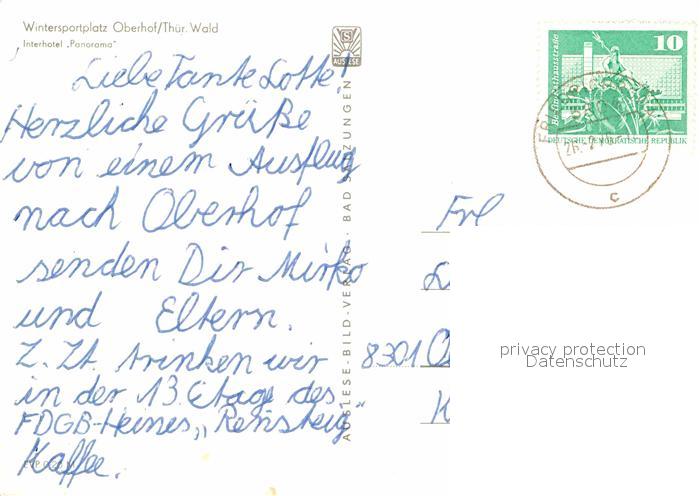 Wintersportplatz Oberhof/Thür. Wald
Interhotel „Panorama"
Liebe Tante Lotte!
Herzliche Grüße
von einem Ausflug
nach Oberhof
senden Dir Mirko
und Eltern.
Z. Zt. trinken wir
in der 13. Etage des
FDGB-Heimes „Rennsteig"
Kaffee.
AUSLESE
AUSLESE-BILD-VERLAG · BAD SALZUNGEN
10
Berlin-Rathausstraße
DEUTSCHE DEMOKRATISCHE REPUBLIK
c
Frl
8301
privacy protection
Datenschutz